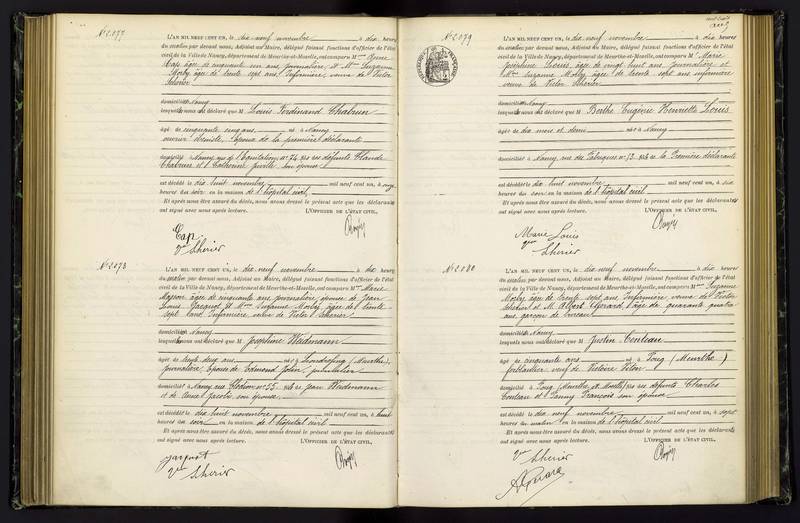 N° 2077
L'AN MIL NEUF CENT UN, le dix neuf novembre à dix heures
du matin par devant nous, Adjoint au Maire, délégué faisant fonctions d'officier de l'état
civil de la Ville de Nancy, département de Meurthe-et-Moselle, ont comparu M
Cap âgée de cinquante ans, journalière, et Mme Suzanne
Morby âgée de trente sept ans, Infirmière, veuve de Victor
Scherier
domiciliés Nancy
lesquelles nous ont déclaré que M Louis Ferdinand Chabrier
âgé de cinquante cinq ans né à Nancy
ouvrier époux de la première déclarante
domicilié à Nancy rue de l'Equitation n° 74 fils des défunts Claude
Chabrier et Catherine son épouse
est décédé le dix huit novembre mil neuf cent un, à onze
heures du soir en la maison de l'hôpital civil
Et après nous être assuré du décès, nous avons dressé le présent acte que les déclarantes
ont signé avec nous après lecture. L'OFFICIER DE L'ÉTAT CIVIL,
Cap
Vve Scherier
N° 2078
L'AN MIL NEUF CENT UN, le dix neuf novembre à dix heures
du matin par devant nous, Adjoint au Maire, délégué faisant fonctions d'officier de l'état
civil de la Ville de Nancy, département de Meurthe-et-Moselle, ont comparu Mme Marie
âgée de cinquante ans journalière, épouse de Jean
Louis Jacquot et Mme Suzanne Morby, âgée de trente
sept ans Infirmière, veuve de Victor Scherier
domiciliés Nancy
lesquelles nous ont déclaré que M Joséphine Weidmann
âgée de trente deux ans née à (Meurthe),
journalière, épouse de Edmond
domiciliée à Nancy rue Clodion n° 35 fille de Jean Weidmann
et de Jacob, son épouse
est décédée le dix huit novembre mil neuf cent un, à huit
heures du soir en la maison de l'hôpital civil
Et après nous être assuré du décès, nous avons dressé le présent acte que les déclarantes
ont signé avec nous après lecture. L'OFFICIER DE L'ÉTAT CIVIL,
Jacquot
Vve Scherier
N° 2079
L'AN MIL NEUF CENT UN, le dix neuf novembre à dix heures
du matin par devant nous, Adjoint au Maire, délégué faisant fonctions d'officier de l'état
civil de la Ville de Nancy, département de Meurthe-et-Moselle, ont comparu M Marie
Joséphine Louis âgée de vingt huit ans, journalière et
Mme Suzanne Morby âgée de trente sept ans infirmière
veuve de Victor Scherier
domiciliées Nancy
lesquelles nous ont déclaré que M Berthe Eugénie Henriette Louis
âgée de dix mois et demi née à Nancy
domiciliée à Nancy rue des Fabriques n° 13 fille de la première déclarante
est décédée le dix huit novembre mil neuf cent un, à dix
heures du soir en la maison de l'hôpital civil
Et après nous être assuré du décès, nous avons dressé le présent acte que les déclarantes
ont signé avec nous après lecture. L'OFFICIER DE L'ÉTAT CIVIL,
Marie Louis
Vve Scherier
N° 2080
L'AN MIL NEUF CENT UN, le dix neuf novembre à dix heures
du matin par devant nous, Adjoint au Maire, délégué faisant fonctions d'officier de l'état
civil de la Ville de Nancy, département de Meurthe-et-Moselle, ont comparu Mme Suzanne
Morby âgée de trente sept ans, Infirmière, veuve de Victor
Scherier et M. Albert Gérard, âgé de quarante quatre
ans, garçon de bureau
domiciliés Nancy
lesquels nous ont déclaré que M Justin Conteau
âgé de cinquante ans né à Foug (Meurthe)
ferblantier veuf de Victoire
domicilié à Foug (Meurthe et Moselle) fils des défunts Charles
Conteau et Fanny François son épouse
est décédé le dix neuf novembre mil neuf cent un, à sept
heures du matin en la maison de l'hôpital civil
Et après nous être assuré du décès, nous avons dressé le présent acte que les déclarants
ont signé avec nous après lecture. L'OFFICIER DE L'ÉTAT CIVIL,
Vve Scherier
A Gérard